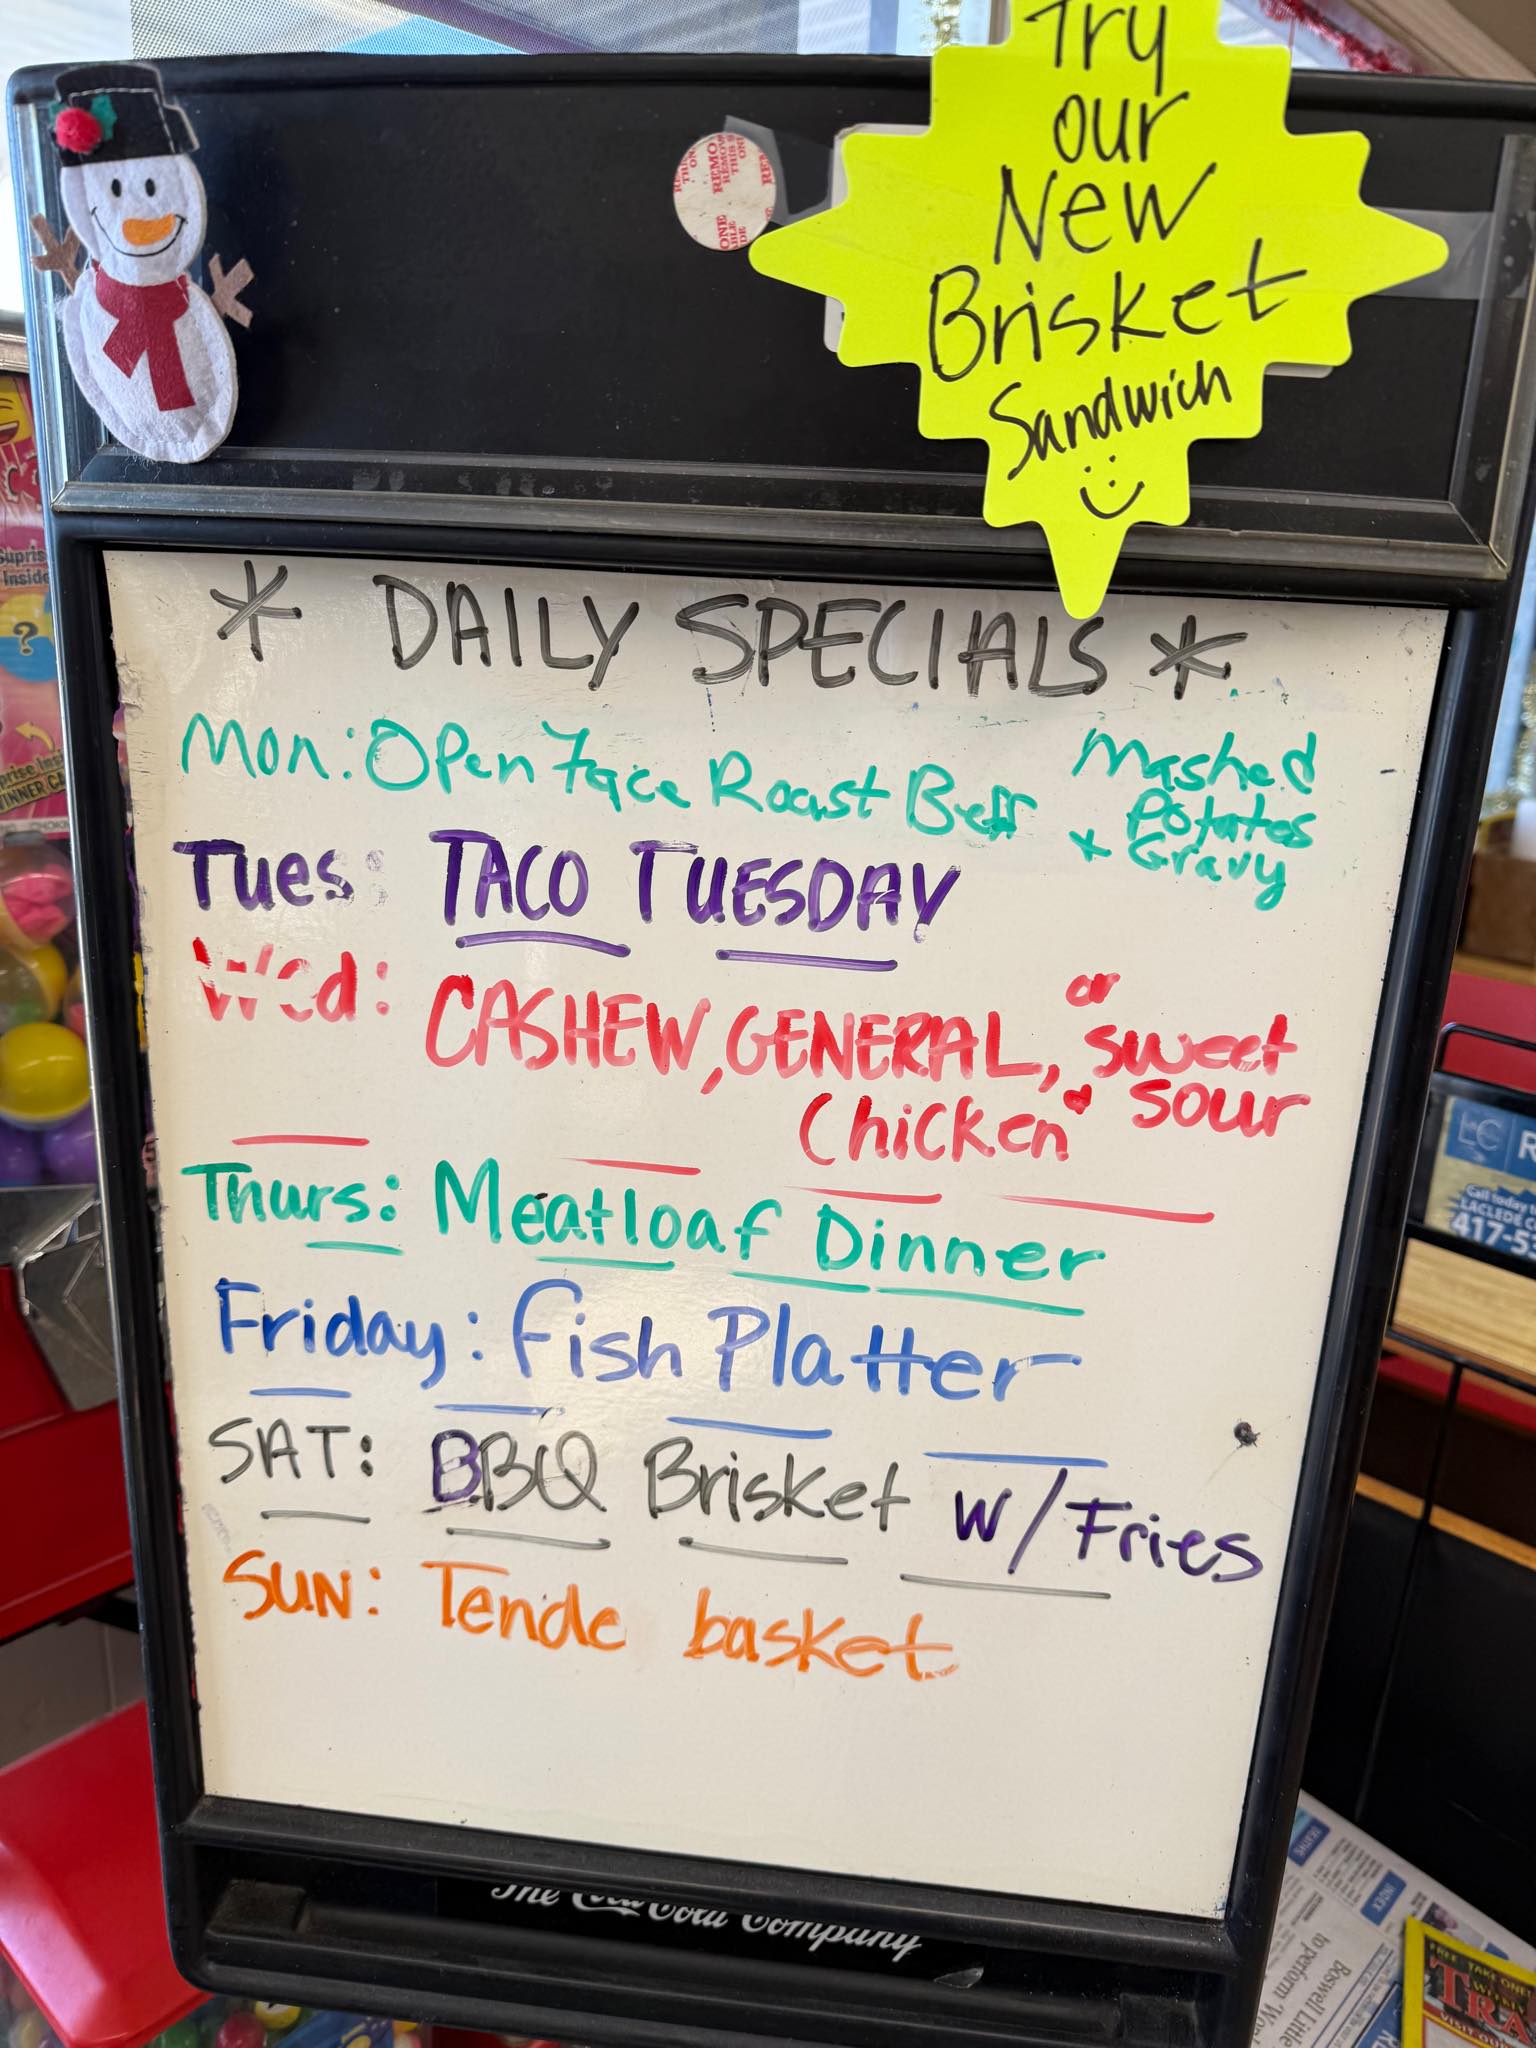 Try
our
New
Brisket
Sandwich
* DAILY SPECIALS *
Mon: Open Face Roast Beff
Mashed
Potatoes
+ Gravy
Tues: TACO TUESDAY
Wed: CASHEW, GENERAL, or
sweet
& sour
Chicken
Thurs: Meatloaf Dinner
Friday: Fish Platter
SAT: BBQ Brisket w/Fries
SUN: Tende basket
The Coca Cola Company
Suprise
Inside
?
WINNER
REMOVE
THIS
ONE
L&C
Call today
LACLEDE
417-53
Boswell Little
to perform
INDEX
FREE - TAKE ONE
WEEKLY
TRA
VISIT OU